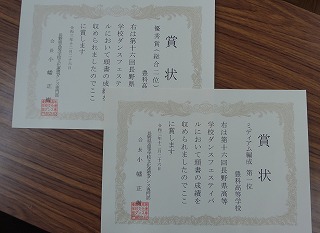 賞状
優秀賞(総合二位)
豊科高
右は第十六回長野県
学校ダンスフェステ
ルにおいて頭書の成績を
収められましたのでここ
に賞します
会長 小幡 正
賞状
ミディアム編成 第一位
豊科高等学校
右は第十六回長野県高等
学校ダンスフェスティバ
ルにおいて頭書の成績を
収められましたのでここ
に賞します
会長 小幡 正